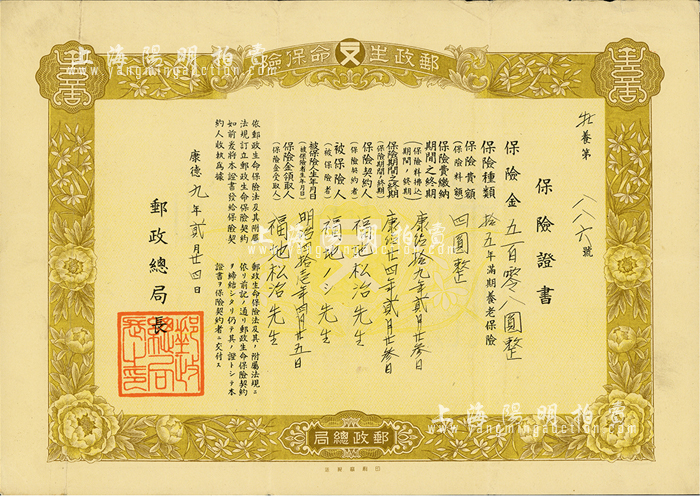 郵政生命保險
壽
壽
牡養第 八八六號
保險證書
保險金 五百零八圓整
保險種類 拾五年滿期養老保險
保險費額 四圓整
(保險料額)
保險費繳納期間之終期 康德拾九年貳月廿參日
(保險料拂込期間ノ終期)
保險期間之終期 康德廿四年貳月廿參日
(保險期間ノ終期)
保險契約人 福地松治先生
(保險契約者)
被保險人 福地ノシ先生
(被保險者)
被保險人生年月日 明治四拾壱年四月廿五日
(被保險者生年月日)
保險金領取人 福地松治先生
(保險金受取人)
依郵政生命保險法及其附屬
法規訂立郵政生命保險契約
如前茲將本證書發給保險契
約人收執為據
郵政生命保險法及其ノ附屬法規ニ
依リ前記ノ通リ郵政生命保險契約
ヲ締結シタリ仍テ其ノ證トシテ本
證書ヲ保險契約者ニ交付ス
康德九年貳月廿四日
郵政總局長
郵政總局長之印
郵政總局
上海陽明拍賣
www.yangmingauction.com
上海陽明拍賣
www.yangmingauction.com
上海陽明拍賣
www.yangmingauction.com
上海陽明拍賣
www.yangmingauction.com